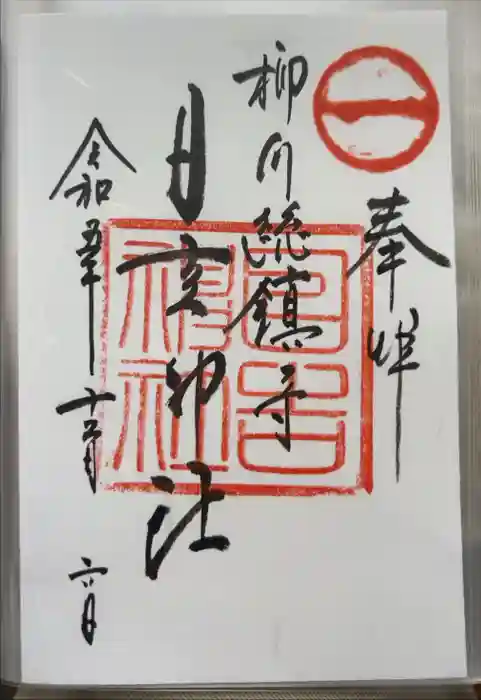 奉拝
柳川総鎮守
日吉神社
令和五年十二月六日
日吉
神社